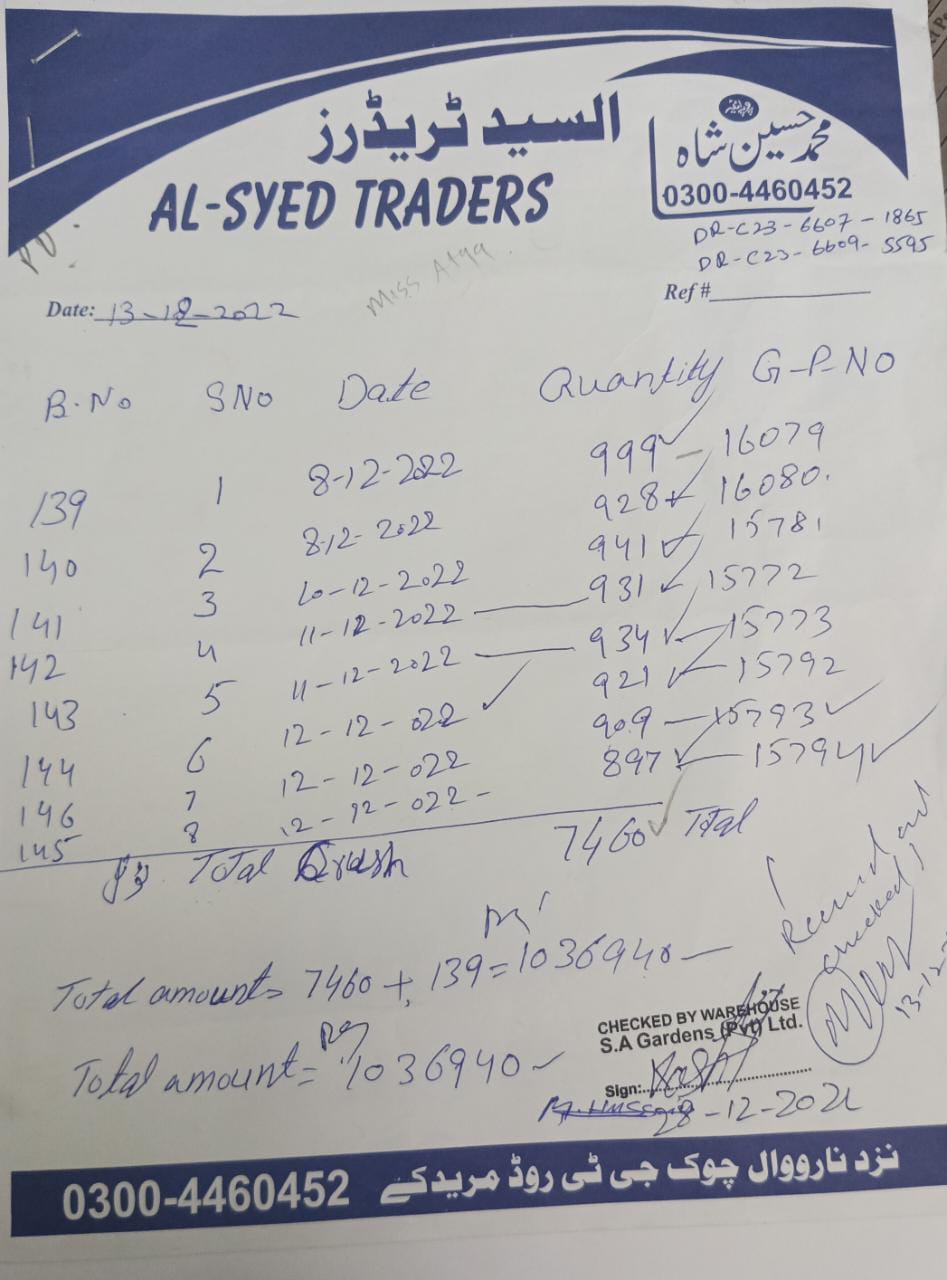 السید ٹریڈرز
AL-SYED TRADERS
پروپرائیٹر
محمد حسین شاہ
0300-4460452
DR-C23-6607-1865
DR-C23-6609-5595
PO:
Miss Atqa.
Date: 13-12-2022
Ref #
B.No S No Date Quantity G-P-No
139 1 8-12-2022 999 - 16079
140 2 8-12-2022 928 16080.
141 3 10-12-2022 941 15781
142 4 11-12-2022 931 15772
143 5 11-12-2022 934 15773
144 6 12-12-022 921 15792
146 7 12-12-022 909 - 15793
145 8 12-12-022- 897 - 15794
Total Crush 7460 Total
Total amount= 7460 + 139 = Rs 1036940 -
Total amount = Rs 1036940
Received and
checked
13-12-
CHECKED BY WAREHOUSE
S.A Gardens (Pvt) Ltd.
Sign:
28-12-2022
0300-4460452 نزد نارووال چوک جی ٹی روڈ مریدکے